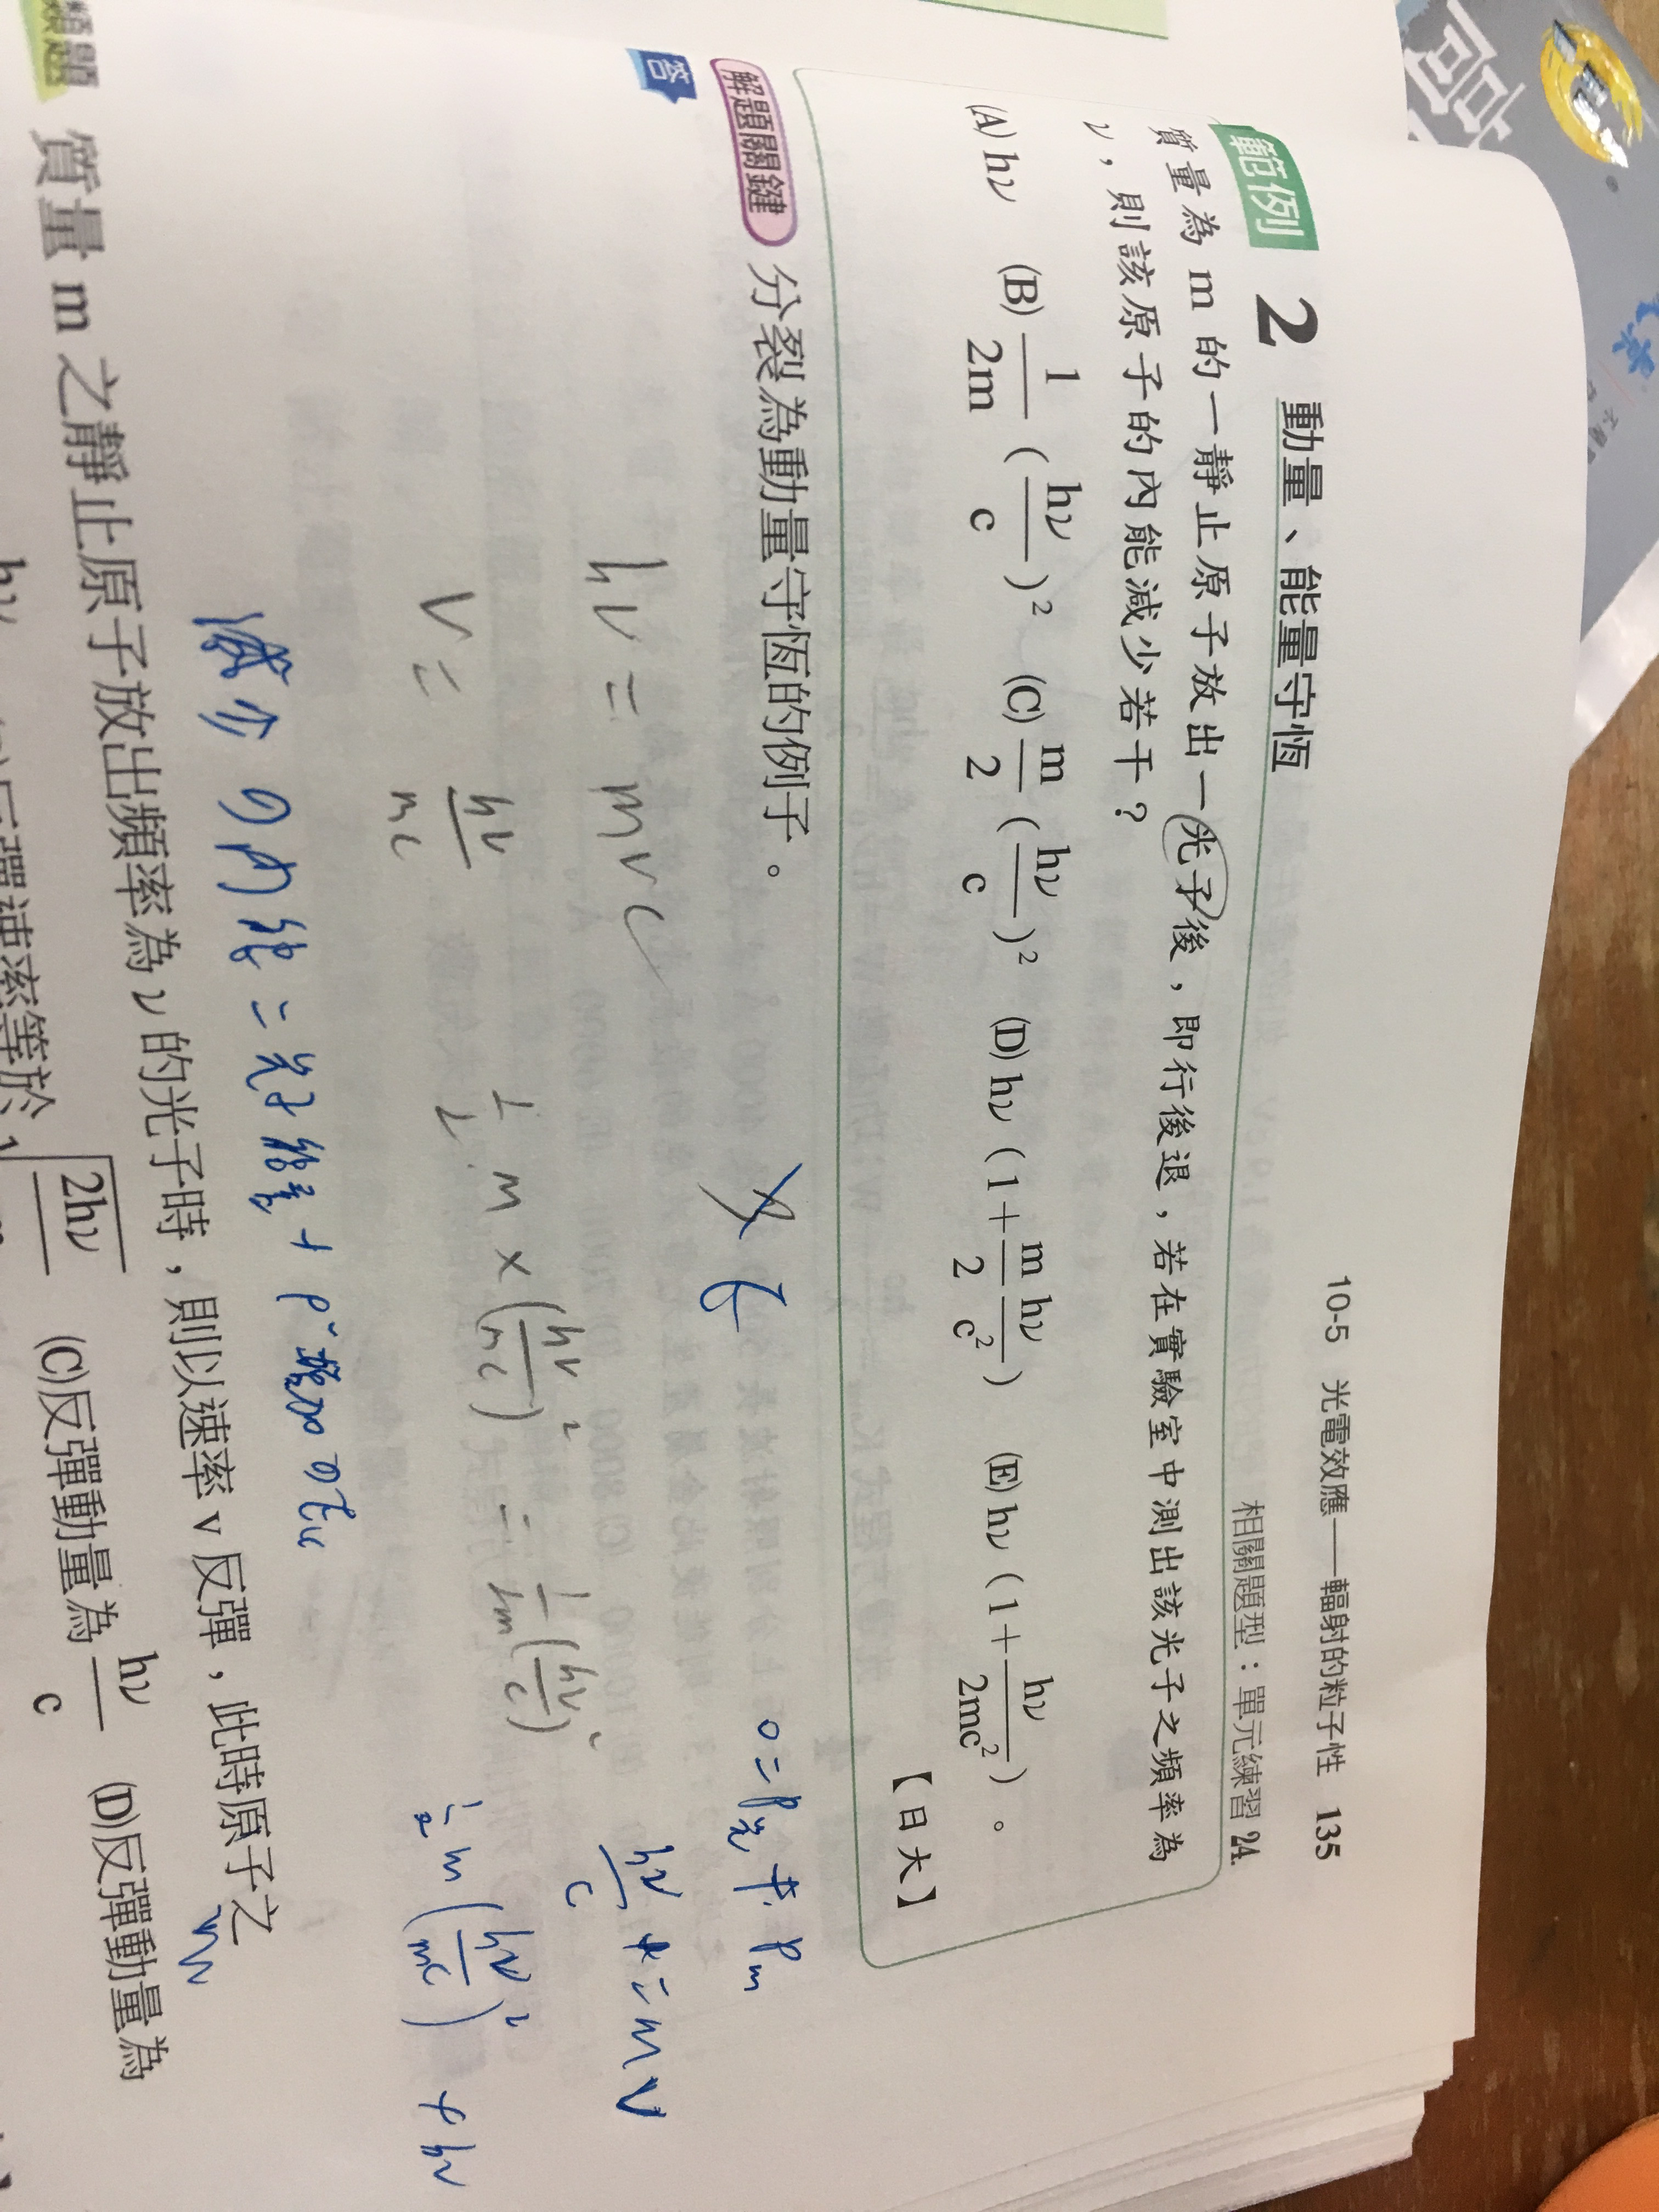 10-5 光電效應——輻射的粒子性 135
範例 2 動量、能量守恆
相關題型：單元練習 24.
質量為 m 的一靜止原子放出一光子後，即行後退，若在實驗室中測出該光子之頻率為
ν，則該原子的內能減少若干？
(A) hν (B) 1/2m (hν/c)² (C) m/2 (hν/c)² (D) hν (1+ m/2 hν/c²) (E) hν (1+ hν/2mc²)。
【日大】
解題關鍵 分裂為動量守恆的例子。
答
0 = P光 + Pm
hν = mvc
hν/c = mv
v = hν/mc
1/2 m × (hν/mc)² = 1/2m (hν/c)²
1/2 m (hν/mc)² + hν
減少の內能 = 光子能量 +
類題 質量 m 之靜止原子放出頻率為 ν 的光子時，則以速率 v 反彈，此時原子之
反彈速率等於 √2hν
(C)反彈動量為 hν/c (D)反彈動量為
高